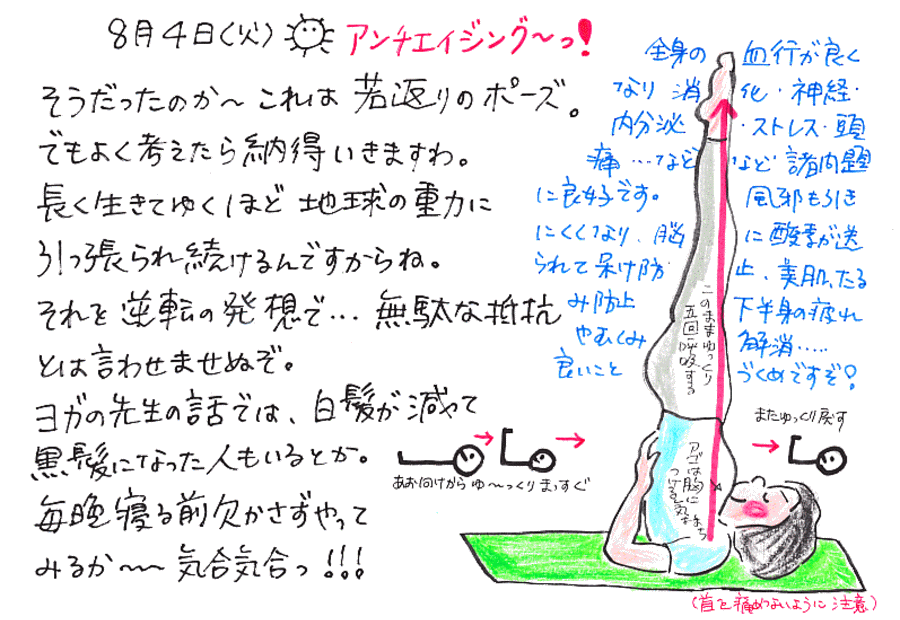 8月4日(火) アンチエイジング〜っ!
そうだったのか〜 これは 若返りのポーズ。
でもよく考えたら納得いきますわ。
長く生きてゆくほど 地球の重力に
引っ張られ続けるんですからね。
それを 逆転の発想で… 無駄な抵抗
とは言わせませぬぞ。
ヨガの先生の話では、白髪が減って
黒髪になった人もいるとか。
毎晩寝る前欠かさずやって
みるか〜〜 気合気合っ!!!
全身の 血行が良く
なり 消 化・神経・
内分泌 ・ストレス・頭
痛…など など 諸問題
に良好です。 風邪もひき
にくくなり、脳 に酸素が送
られて呆け防 止、美肌、たる
み防止 下半身の疲れ
やむくみ 解消……
良いこと づくめですぞ!
このままゆっくり
五回呼吸する
アゴは胸に
つける気持ち
あお向けから ゆ〜っくり まっすぐ
またゆっくり戻す
(首を痛めないように注意)